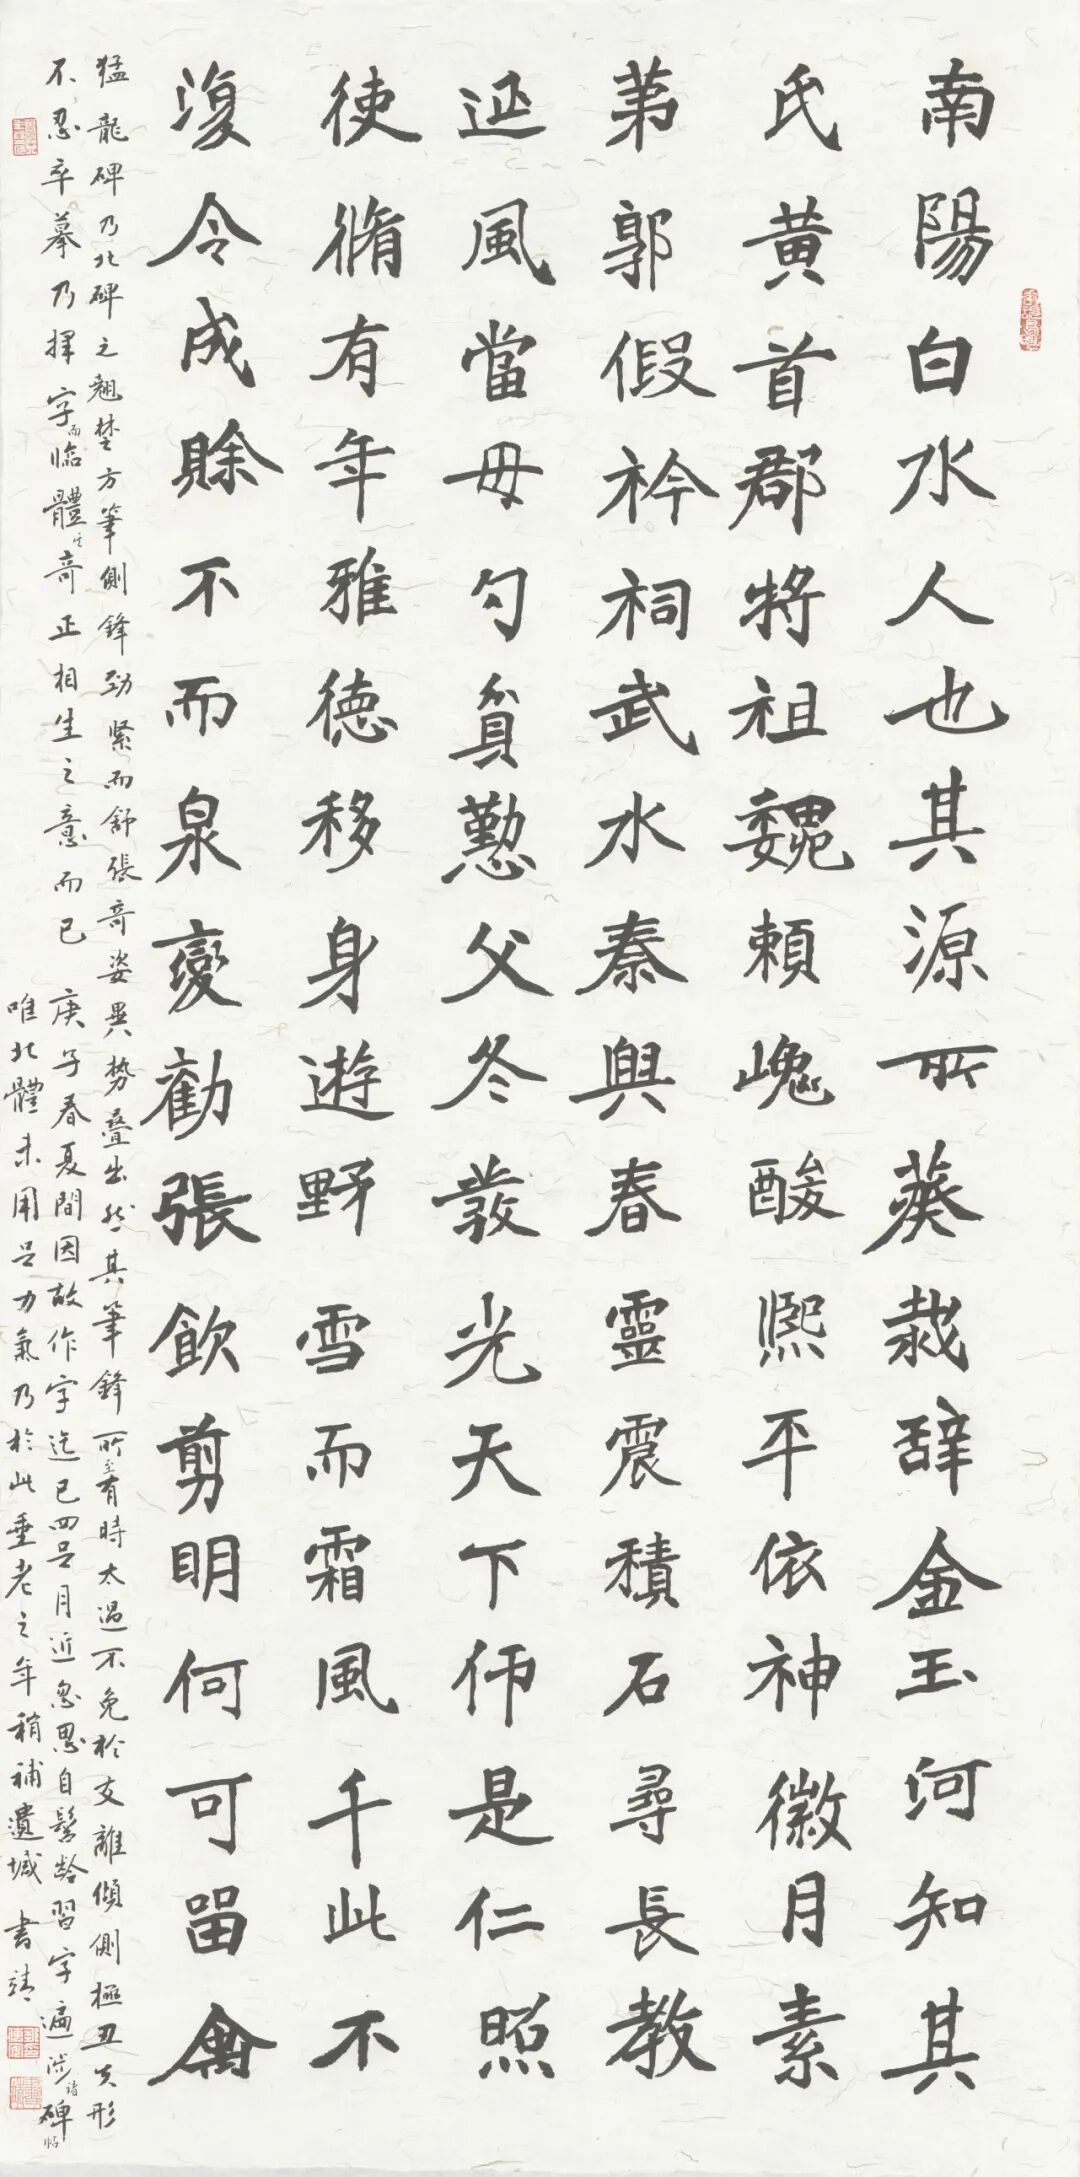 南陽白水人也其源所葵哉辞金玉河知其
氏黄首郡将祖魏頼巙酸熙平依神徽月素
苐郭假衿祠武水秦與春靈震積石尋長教
延風當毋勺負懃父冬發光天下师是仁照
使脩有年雅徳移身遊野雪而霜風千此不
復令成賒不而泉變勸張飲剪明何可留禽
猛龍碑乃北碑之翹楚方筆側鋒勁緊而舒張奇姿異勢疊出然其筆鋒所至有時太過不免於支離傾側極丑失形
不忍卒摹乃擇字而临體之奇正相生之意而已 庚子春夏間因故作字迄已四足月近忽思自髫龄習字遍涉諸碑帖
唯北體未用足力氣乃於此垂老之年稍補遺域 書靖